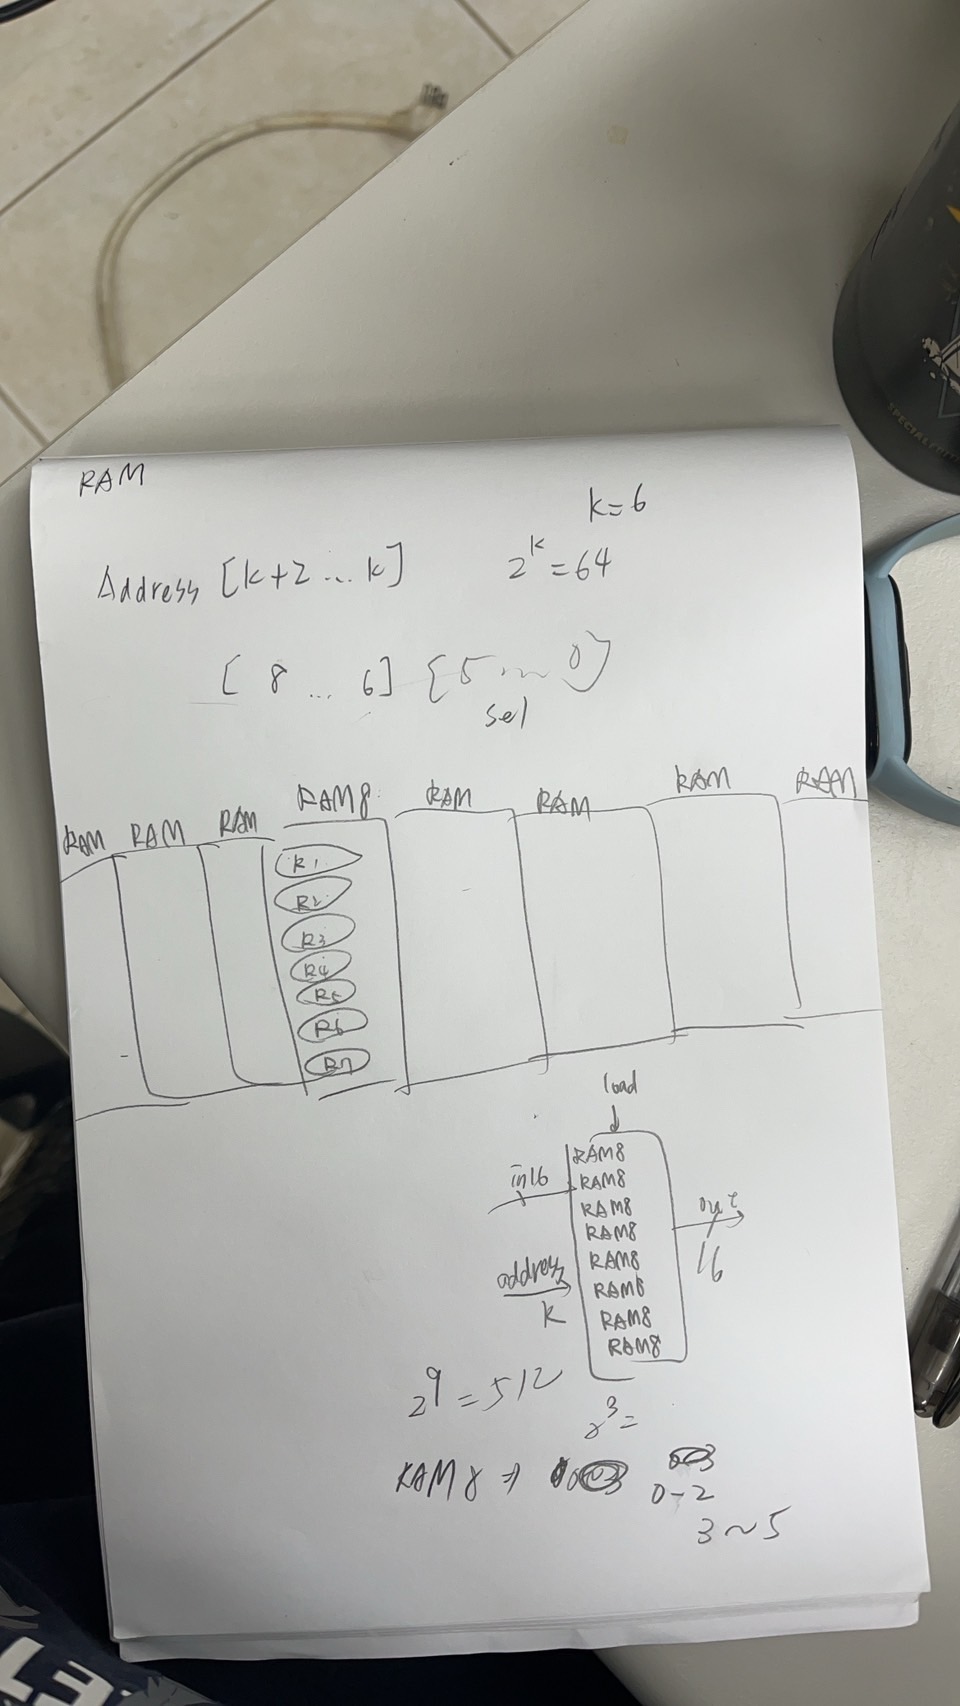 RAM
k=6
Address [k+2 ... k]
2^k = 64
[ 8 ... 6] {5 ... 0}
sel
RAM RAM RAM RAM8 RAM RAM RAM RAM
R1
R2
R3
R4
R5
R6
R7
load
in16
address
k
RAM8
RAM8
RAM8
RAM8
RAM8
RAM8
RAM8
RAM8
out
16
2^9 = 512
2^3 =
RAM8 ⇒
0-2
3~5
SPECIAL